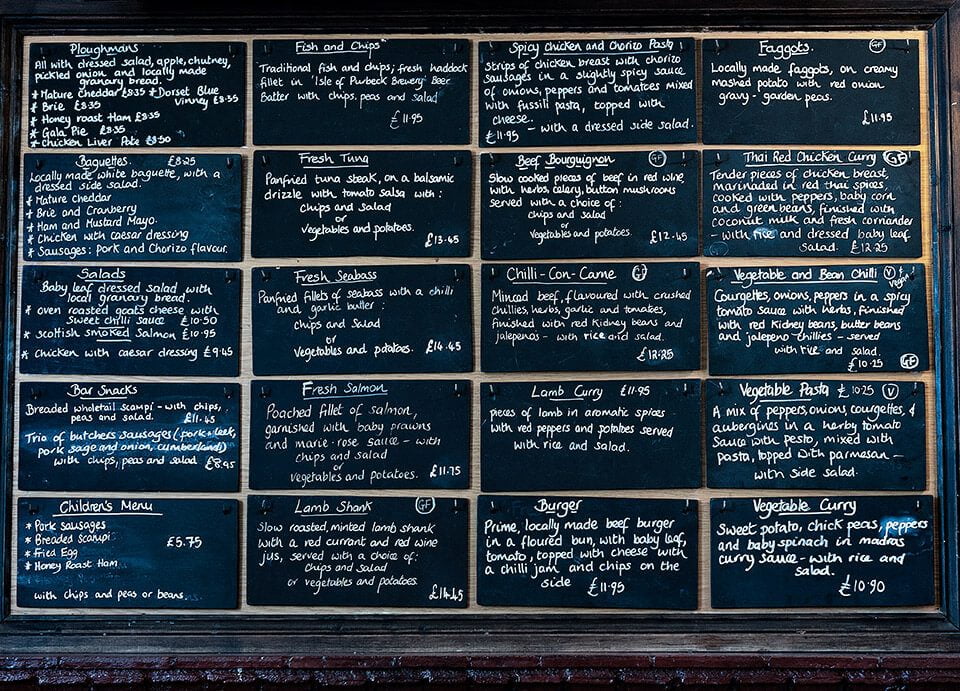 Ploughmans
All with dressed salad, apple, chutney,
pickled onion and locally made
granary bread.
* Mature Cheddar £8.35 * Dorset Blue
* Brie £8.35 Vinney £8.35
* Honey roast Ham £8.35
* Gala Pie £8.35
* Chicken Liver Pate £8.50
Baguettes. £8.25
Locally made white baguette, with a
dressed side salad.
* Mature cheddar
* Brie and Cranberry
* Ham and Mustard Mayo.
* Chicken with caesar dressing
* Sausages: Pork and Chorizo flavour.
Salads
Baby leaf dressed salad, with
local granary bread.
* oven roasted goats cheese with
Sweet chilli sauce £10.50
* scottish smoked Salmon £10.95
* Chicken with caesar dressing £9.45
Bar Snacks
Breaded wholetail scampi - with chips,
peas and salad. £11.45
Trio of butchers sausages (pork + leek,
pork sage and onion, cumberland)
with chips, peas and salad £8.95
Children's Menu
* Pork Sausages
* Breaded Scampi £5.75
* Fried Egg
* Honey Roast Ham
with chips and peas or beans.
Fish and Chips
Traditional fish and chips; fresh haddock
fillet in 'Isle of Purbeck Brewery' Beer
Batter with chips, peas and salad
£11.95
Fresh Tuna
Panfried tuna steak, on a balsamic
drizzle with tomato salsa with:
chips and salad
or
vegetables and potatoes.
£13.45
Fresh Seabass
Panfried fillets of seabass with a chilli
and garlic butter:
chips and Salad
or
vegetables and potatoes. £14.45
Fresh Salmon
Poached fillet of salmon,
garnished with baby prawns
and marie-rose sauce - with
chips and salad
or
vegetables and potatoes. £11.75
Lamb Shank GF
Slow roasted, minted lamb shank
with a red currant and red wine
jus, served with a choice of:
chips and salad
or vegetables and potatoes
£14.45
Spicy Chicken and Chorizo Pasta
Strips of chicken breast with chorizo
sausages in a slightly spicy sauce
of onions, peppers and tomatoes mixed
with fussili pasta, topped with
cheese.
£11.95 - with a dressed side salad.
Beef Bourguignon GF
Slow cooked pieces of beef in red wine,
with herbs, celery, button mushrooms
served with a choice of:
chips and salad
or
vegetables and potatoes. £12.45
Chilli-Con-Carne GF
Minced beef, flavoured with crushed
chillies, herbs, garlic and tomatoes,
finished with red Kidney beans and
jalepenos - with rice and salad.
£12.25
Lamb Curry £11.95
pieces of lamb in aromatic spices
with red peppers and potatoes served
with rice and salad.
Burger
Prime, locally made beef burger
in a floured bun, with baby leaf,
tomato, topped with cheese with
a chilli jam and chips on the
side £11.95
Faggots. GF
Locally made faggots, on creamy
mashed potato with red onion
gravy - garden peas.
£11.95
Thai Red Chicken Curry GF
Tender pieces of chicken breast,
marinaded in red thai spices,
cooked with peppers, baby corn
and green beans, finished with
coconut milk and fresh corriander
- with rice and dressed baby leaf
Salad. £12.25
Vegetable and Bean Chilli V + Vegan
Courgettes, onions, peppers in a spicy
tomato sauce with herbs, finished
with red kidney beans, butter beans
and jalepeno chillies - served
with rice and salad.
£10.25 GF
Vegetable Pasta £10.25 V
A mix of peppers, onions, courgettes, &
aubergines in a herby tomato
Sauce with pesto, mixed with
pasta, topped with parmesan -
with side salad.
Vegetable Curry
Sweet potato, chick peas, peppers
and baby spinach in madras
curry sauce - with rice and
salad.
£10.90